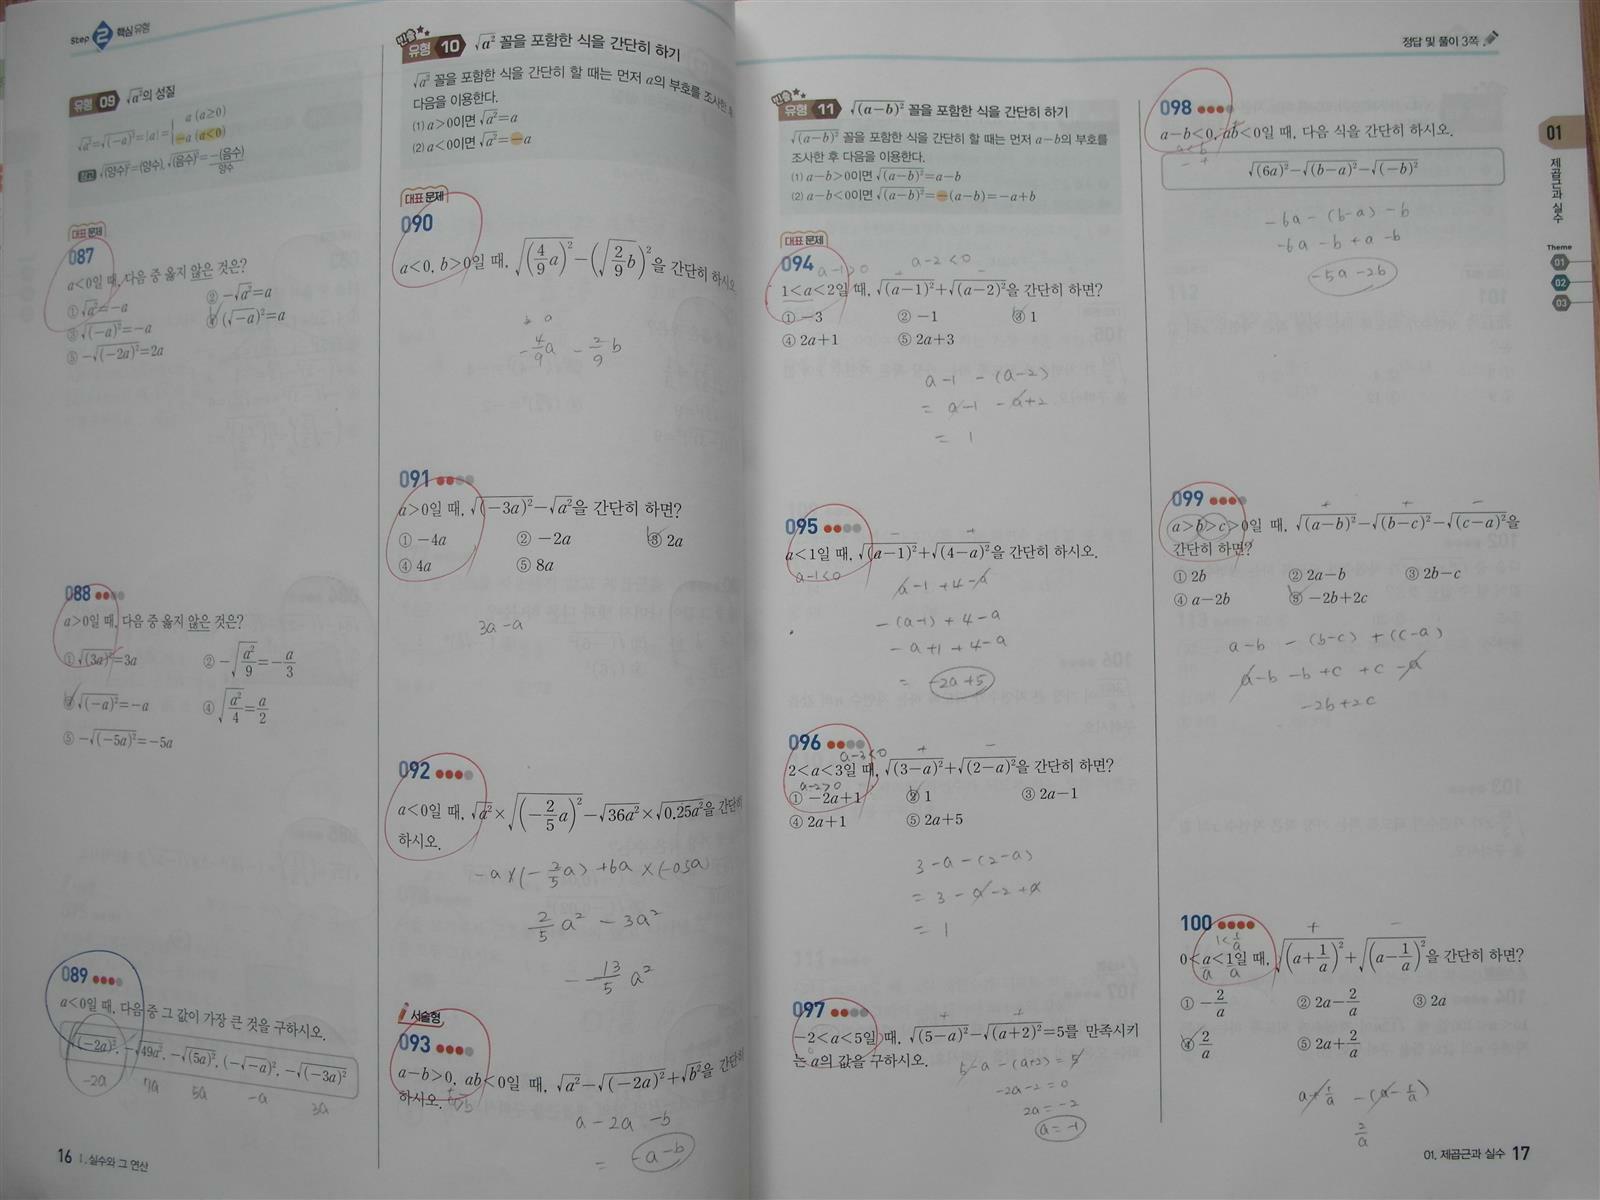 Step 2 핵심 유형
유형 09 √a²의 성질
√a²=√(-a)²=|a|= a (a≥0)
-a (a<0)
참고 √(양수)²=(양수), √(음수)²=-(음수)
양수
대표 문제
087
a<0일 때, 다음 중 옳지 않은 것은?
① √a²=-a ② -√a²=a
③ √(-a)²=-a ④ (√-a)²=a
⑤ -√(-2a)²=2a
088
a>0일 때, 다음 중 옳지 않은 것은?
① √(3a)²=3a ② -√(a²/9)=-a/3
③ √(-a)²=-a ④ √(a²/4)=a/2
⑤ -√(-5a)²=-5a
089
a<0일 때, 다음 중 그 값이 가장 큰 것을 구하시오.
√(-2a)², -√49a², -√(5a)², (-√-a)², -√(-3a)²
-2a 7a 5a -a 3a
16 Ⅰ. 실수와 그 연산
빈출
유형 10 √a² 꼴을 포함한 식을 간단히 하기
√a² 꼴을 포함한 식을 간단히 할 때는 먼저 a의 부호를 조사한 후
다음을 이용한다.
(1) a>0이면 √a²=a
(2) a<0이면 √a²=-a
대표 문제
090
a<0, b>0일 때, √(4/9 a)²-(√(2/9 b))²을 간단히 하시오
-4/9 a - 2/9 b
091
a>0일 때, √(-3a)²-√a²을 간단히 하면?
① -4a ② -2a ③ 2a
④ 4a ⑤ 8a
3a-a
092
a<0일 때, √a²×√(-2/5 a)²-√36a²×√0.25a²을 간단히
하시오.
-a×(-2/5 a)+6a×(-0.5a)
2/5 a² - 3a²
-13/5 a²
서술형
093
a-b>0, ab<0일 때, √a²-√(-2a)²+√b²을 간단히
하시오.
a-2a-b
= -a-b
정답 및 풀이 3쪽
빈출
유형 11 √(a-b)² 꼴을 포함한 식을 간단히 하기
√(a-b)² 꼴을 포함한 식을 간단히 할 때는 먼저 a-b의 부호를
조사한 후 다음을 이용한다.
(1) a-b>0이면 √(a-b)²=a-b
(2) a-b<0이면 √(a-b)²=-(a-b)=-a+b
대표 문제
094
a-1>0 + a-2<0 -
1<a<2일 때, √(a-1)²+√(a-2)²을 간단히 하면?
① -3 ② -1 ③ 1
④ 2a+1 ⑤ 2a+3
a-1 -(a-2)
= a-1 -a+2
= 1
095
- +
a<1일 때, √(a-1)²+√(4-a)²을 간단히 하시오.
a-1<0
a-1+4-a
-(a-1)+4-a
-a+1+4-a
= -2a+5
096
a-3<0 + -
2<a<3일 때, √(3-a)²+√(2-a)²을 간단히 하면?
a-2>0
① -2a+1 ② 1 ③ 2a-1
④ 2a+1 ⑤ 2a+5
3-a-(2-a)
= 3-a-2+a
= 1
097
+ +
-2<a<5일 때, √(5-a)²-√(a+2)²=5를 만족시키
는 a의 값을 구하시오.
5-a-(a+2)=5
-2a-2=0
2a=-2
a=-1
098
a-b<0, ab<0일 때, 다음 식을 간단히 하시오.
a<b
- +
√(6a)²-√(b-a)²-√(-b)²
-6a-(b-a)-b
-6a-b+a-b
-5a-2b
099
+ + -
a>b>c>0일 때, √(a-b)²-√(b-c)²-√(c-a)²을
간단히 하면?
① 2b ② 2a-b ③ 2b-c
④ a-2b ⑤ -2b+2c
a-b -(b-c) +(c-a)
a-b-b+c+c-a
-2b+2c
100
1<1/a + -
0<a<1일 때, √(a+1/a)²+√(a-1/a)²을 간단히 하면?
a a
① -2/a ② 2a-2/a ③ 2a
④ 2/a ⑤ 2a+2/a
a+1/a -(a-1/a)
2/a
01
제곱근과 실수
Theme
01
02
03
01. 제곱근과 실수 17